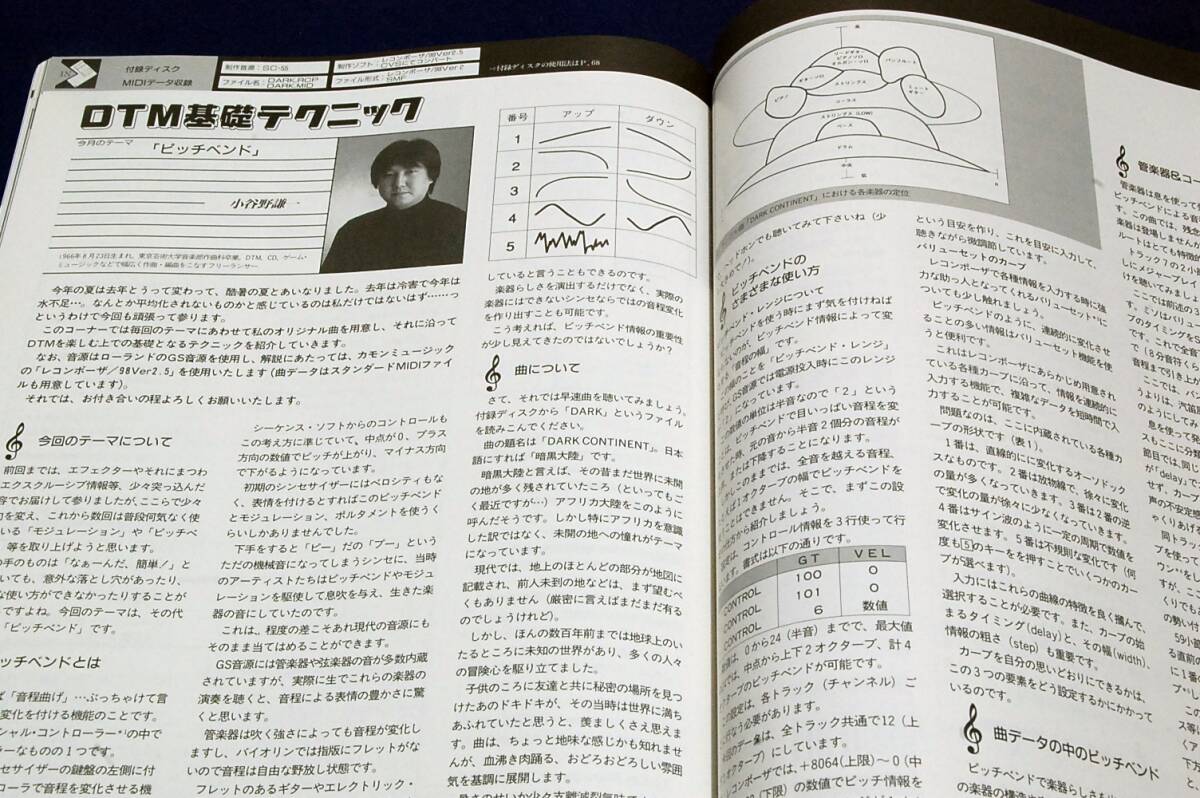 18
付録ディスク
MIDIデータ収録
制作音源:SC-55
ファイル名:DARK.RCP
DARK.MID
制作ソフト:レコンポーザ/98Ver2.5
CVSにてコンバート
ファイル形式:レコンポーザ/98Ver2
SMF
→付録ディスクの使用法はP.68
DTM基礎テクニック
今月のテーマ
「ピッチベンド」
小谷野謙一
1966年8月23日生まれ、東京芸術大学音楽部作曲科卒業。DTM、CD、ゲーム・
ミュージックなどで幅広く作曲・編曲をこなすフリーランサー
番号 アップ ダウン
1
2
3
4
5
今年の夏は去年とうって変わって、酷暑の夏とあいなりました。去年は冷害で今年は
水不足…。なんとか平均化されないものかと感じているのは私だけではないはず……っ
というわけで今回も頑張って参ります。
このコーナーでは毎回のテーマにあわせて私のオリジナル曲を用意し、それに沿って
DTMを楽しむ上での基礎となるテクニックを紹介していきます。
なお、音源はローランドのGS音源を使用し、解説にあたっては、カモンミュージック
の「レコンポーザ/98Ver2.5」を使用いたします(曲データはスタンダードMIDIファイ
ルも用意しています)。
それでは、お付き合いの程よろしくお願いいたします。
今回のテーマについて
前回までは、エフェクターやそれにまつわ
エクスクルーシブ情報等、少々突っ込んだ
容でお届けして参りましたが、ここらで少々
向を変え、これから数回は普段何気なく使
いる「モジュレーション」や「ピッチベ
等を取り上げようと思います。
の手のものは「なぁーんだ、簡単!」と
いても、意外な落とし穴があったり、
な使い方ができなかったりすることが
すよね。今回のテーマは、その代
「ピッチベンド」です。
ッチベンドとは
ば「音程曲げ」…ぶっちゃけて言
変化を付ける機能のことです。
シャル・コントローラー*¹の中で
ラーなものの1つです。
セサイザーの鍵盤の左側に付
ローラで音程を変化させる機
シーケンス・ソフトからのコントロールも
この考え方に準じていて、中点が0、プラス
方向の数値でピッチが上がり、マイナス方向
で下がるようになっています。
初期のシンセサイザーにはベロシティもな
く、表情を付けるとすればこのピッチベンド
とモジュレーション、ポルタメントを使うく
らいしかありませんでした。
下手をすると「ピー」だの「ブー」という
ただの機械音になってしまうシンセに、当時
のアーティストたちはピッチベンドやモジュ
レーションを駆使して息吹を与え、生きた楽
器の音にしていたのです。
これは、程度の差こそあれ現代の音源にも
そのまま当てはめることができます。
GS音源には管楽器や弦楽器の音が多数内蔵
されていますが、実際に生でこれらの楽器の
演奏を聴くと、音程による表情の豊かさに驚
くと思います。
管楽器は吹く強さによっても音程が変化し
ますし、バイオリンでは指版にフレットがな
いので音程は自由な野放し状態です。
フレットのあるギターやエレクトリック・
していると言うこともできるのです。
楽器らしさを演出するだけでなく、実際の
楽器にはできないシンセならではの音程変化
を作り出すことも可能です。
こう考えれば、ピッチベンド情報の重要性
が少し見えてきたのではないでしょうか?
曲について
さて、それでは早速曲を聴いてみましょう。
付録ディスクから「DARK」というファイル
を読みこんでください。
曲の題名は「DARK CONTINENT」。日本
語にすれば「暗黒大陸」です。
暗黒大陸と言えば、その昔まだ世界に未開
の地が多く残されていたころ(といってもご
く最近ですが…)アフリカ大陸をこのように
呼んだそうです。しかし特にアフリカを意識
した訳ではなく、未開の地への憧れがテーマ
になっています。
現代では、地上のほとんどの部分が地図に
記載され、前人未到の地などは、まず望むべ
くもありません(厳密に言えばまだまだ有る
のでしょうけれど)。
しかし、ほんの数百年前までは地球上のい
たるところに未知の世界があり、多くの人々
の冒険心を駆り立てました。
子供のころに友達と共に秘密の場所を見つ
けたあのドキドキが、その当時は世界に満ち
あふれていたと思うと、羨ましくさえ思えま
す。曲は、ちょっと地味な感じかも知れませ
んが、血沸き肉踊る、おどろおどろしい雰囲
気を基調に展開します。
高
リードギター
ピアノソロ
オルガン・ソロ
パンフルート
ギター・ソロ
ストリングス
ミュート
ギター
ピアノ
コーラス
ストリングス(LOW)
ベース
ドラム
中央
低
R
「DARK CONTINENT」における各楽器の定位
ィドホンでも聴いてみて下さいね(少
ピッチベンドの
さまざまな使い方
ベンド・レンジについて
ベンドを使う時にまず気を付けねば
ないのが、ピッチベンド情報によって変
「音程の幅」です。
幅のことを「ピッチベンド・レンジ」
GS音源では電源投入時にこのレンジ
になっています。
数値の単位は半音なので「2」という
ピッチベンドで目いっぱい音程を変
せた時、元の音から半音2個分の音程が
または下降することになります。
このままでは、全音を越える音程、
1オクターブの幅でピッチベンドを
ことはできません。そこで、まずこの設
方から紹介しましょう。
コントロール情報を3行使って行
書式は以下の通りです。
GT VEL
CONTROL 100 0
CONTROL 101 0
CONTROL 6 数値
数値は、0から24(半音)までで、最大値
中点から上下2オクターブ、計4
オクターブのピッチベンドが可能です。
この設定は、各トラック(チャンネル)ご
行なう必要があります。
今回のデータ集は、全トラック共通で12(上
オクターブ)にしています。
コンポーザでは、+8064(上限)〜0(中
(下限)の数値でピッチ情報を
という目安を作り、これを目安に入力して、
聴きながら微調節しています。
バリューセットのカーブ
レコンポーザで各種情報を入力する時に強
力な助っ人となってくれるバリューセット*²に
ついても少し触れましょう。
ピッチベンドのように、連続的に変化させ
ることの多い情報はバリューセット機能を使
うと便利です。
これはレコンポーザにあらかじめ用意され
ている各種カーブに沿って、情報を連続的に
入力する機能で、複雑なデータを短時間で入
力することが可能です。
問題なのは、ここに内蔵されている各種カ
ーブの形状です(表1)。
1番は、直線的にに変化するオーソドック
スなものです。2番は放物線で、徐々に変化
の量が多くなっていきます。3番は2番の逆
で変化の量が徐々に少なくなっていきます。
4番はサイン波のように一定の周期で数値を
変化させます。5番は不規則な変化です(何
度も5のキーを押すことでいくつかのカー
ブが選べます)。
入力にはこれらの曲線の特徴を良く掴んで、
選択することが必要です。また、カーブの始
まるタイミング(delay)と、その幅(width)、
情報の粗さ(step)も重要です。
カーブを自分の思いどおりにできるかは、
この3つの要素をどう設定するかにかかって
いるのです。
曲データの中のピッチベンド
ピッチベンドで楽器らしさを出
管楽器&コー
管楽器は息を使って
ピッチベンドによる音
す。この曲では、残念
楽器は登場しません
ルートはとても特徴的